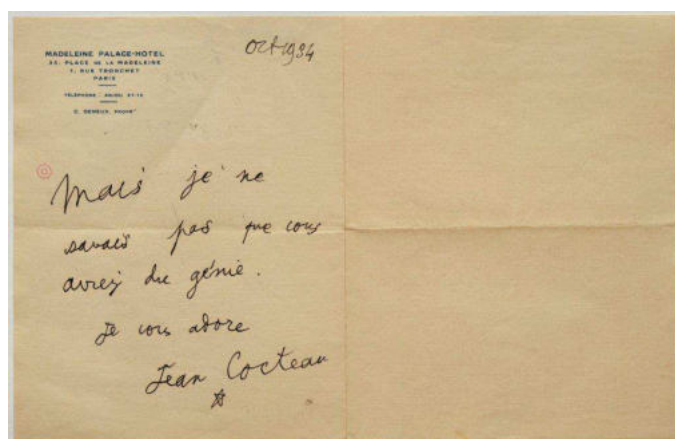 MADELEINE PALACE-HOTEL
33, PLACE DE LA MADELEINE
1, RUE TRONCHET
PARIS
TÉLÉPHONE
oct 1934
Mais je ne
savais pas que vous
aviez du génie.
Je vous adore
Jean Cocteau